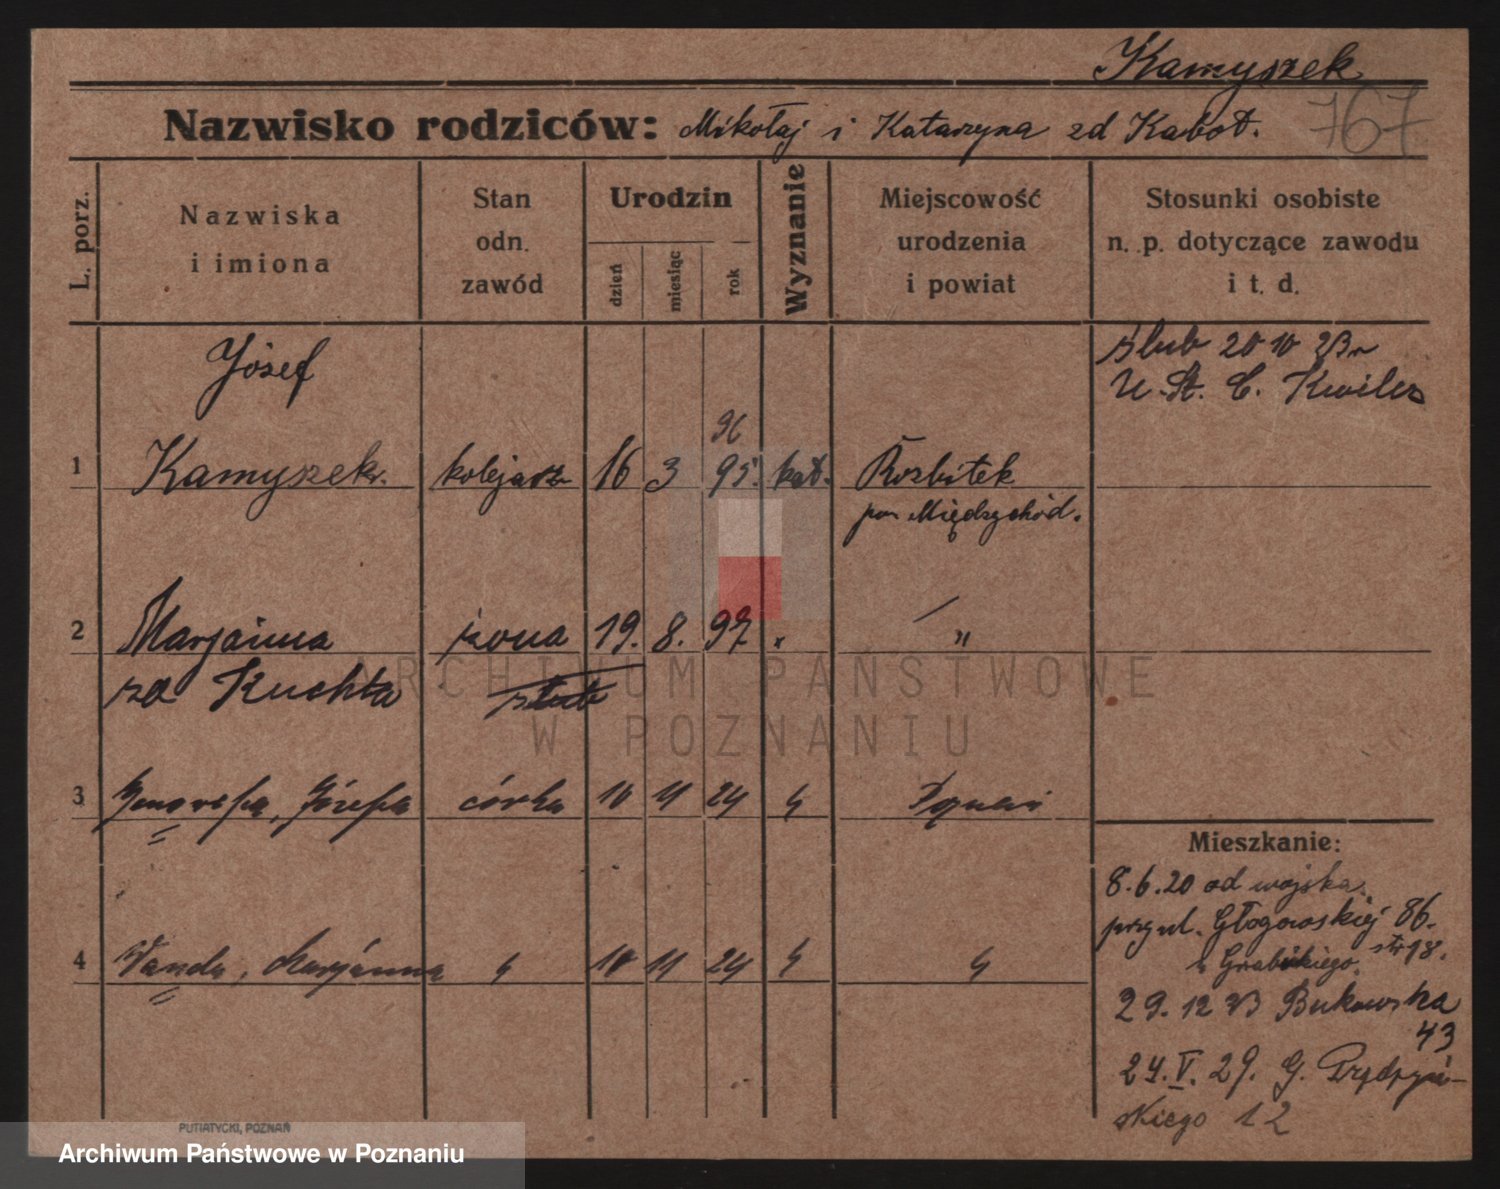 Kamyszek
767
Nazwisko rodziców: Mikołaj i Katarzyna zd Kabot.
L. porz.
Nazwiska
i imiona
Stan
odn.
zawód
Urodzin
dzień
miesiąc
rok
Wyznanie
Miejscowość
urodzenia
i powiat
Stosunki osobiste
n. p. dotyczące zawodu
i t. d.
ślub 20 10 23 r
U. St. C. Kwilcz
Józef
96
1 Kamyszek. kolejarz 16 3 95. kat. Rozbitek
pow Międzychód.
2 Marjanna żona 19. 8. 97 " "
za Kuchta
3 Genowefa, Józefa córka 10 11 24 Poznań
4 Wanda, Marjanna 10 11 24
Mieszkanie:
8.6.20 od wojska.
przy ul. Głogowskiej 86.
u Grabskiego. str 18.
29. 12 23 Bukowska
43
24. V. 29. G. Prądzyń-
skiego 12
PUTIATYCKI, POZNAŃ
ARCHIWUM PAŃSTWOWE
W POZNANIU
Archiwum Państwowe w Poznaniu